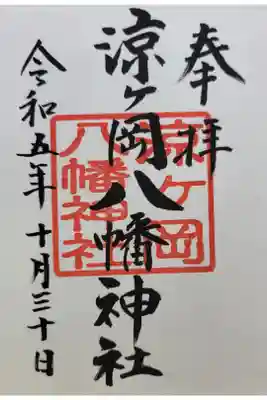 奉拝
涼ヶ岡八幡神社
涼ヶ岡
八幡神社
令和五年 十月三十日